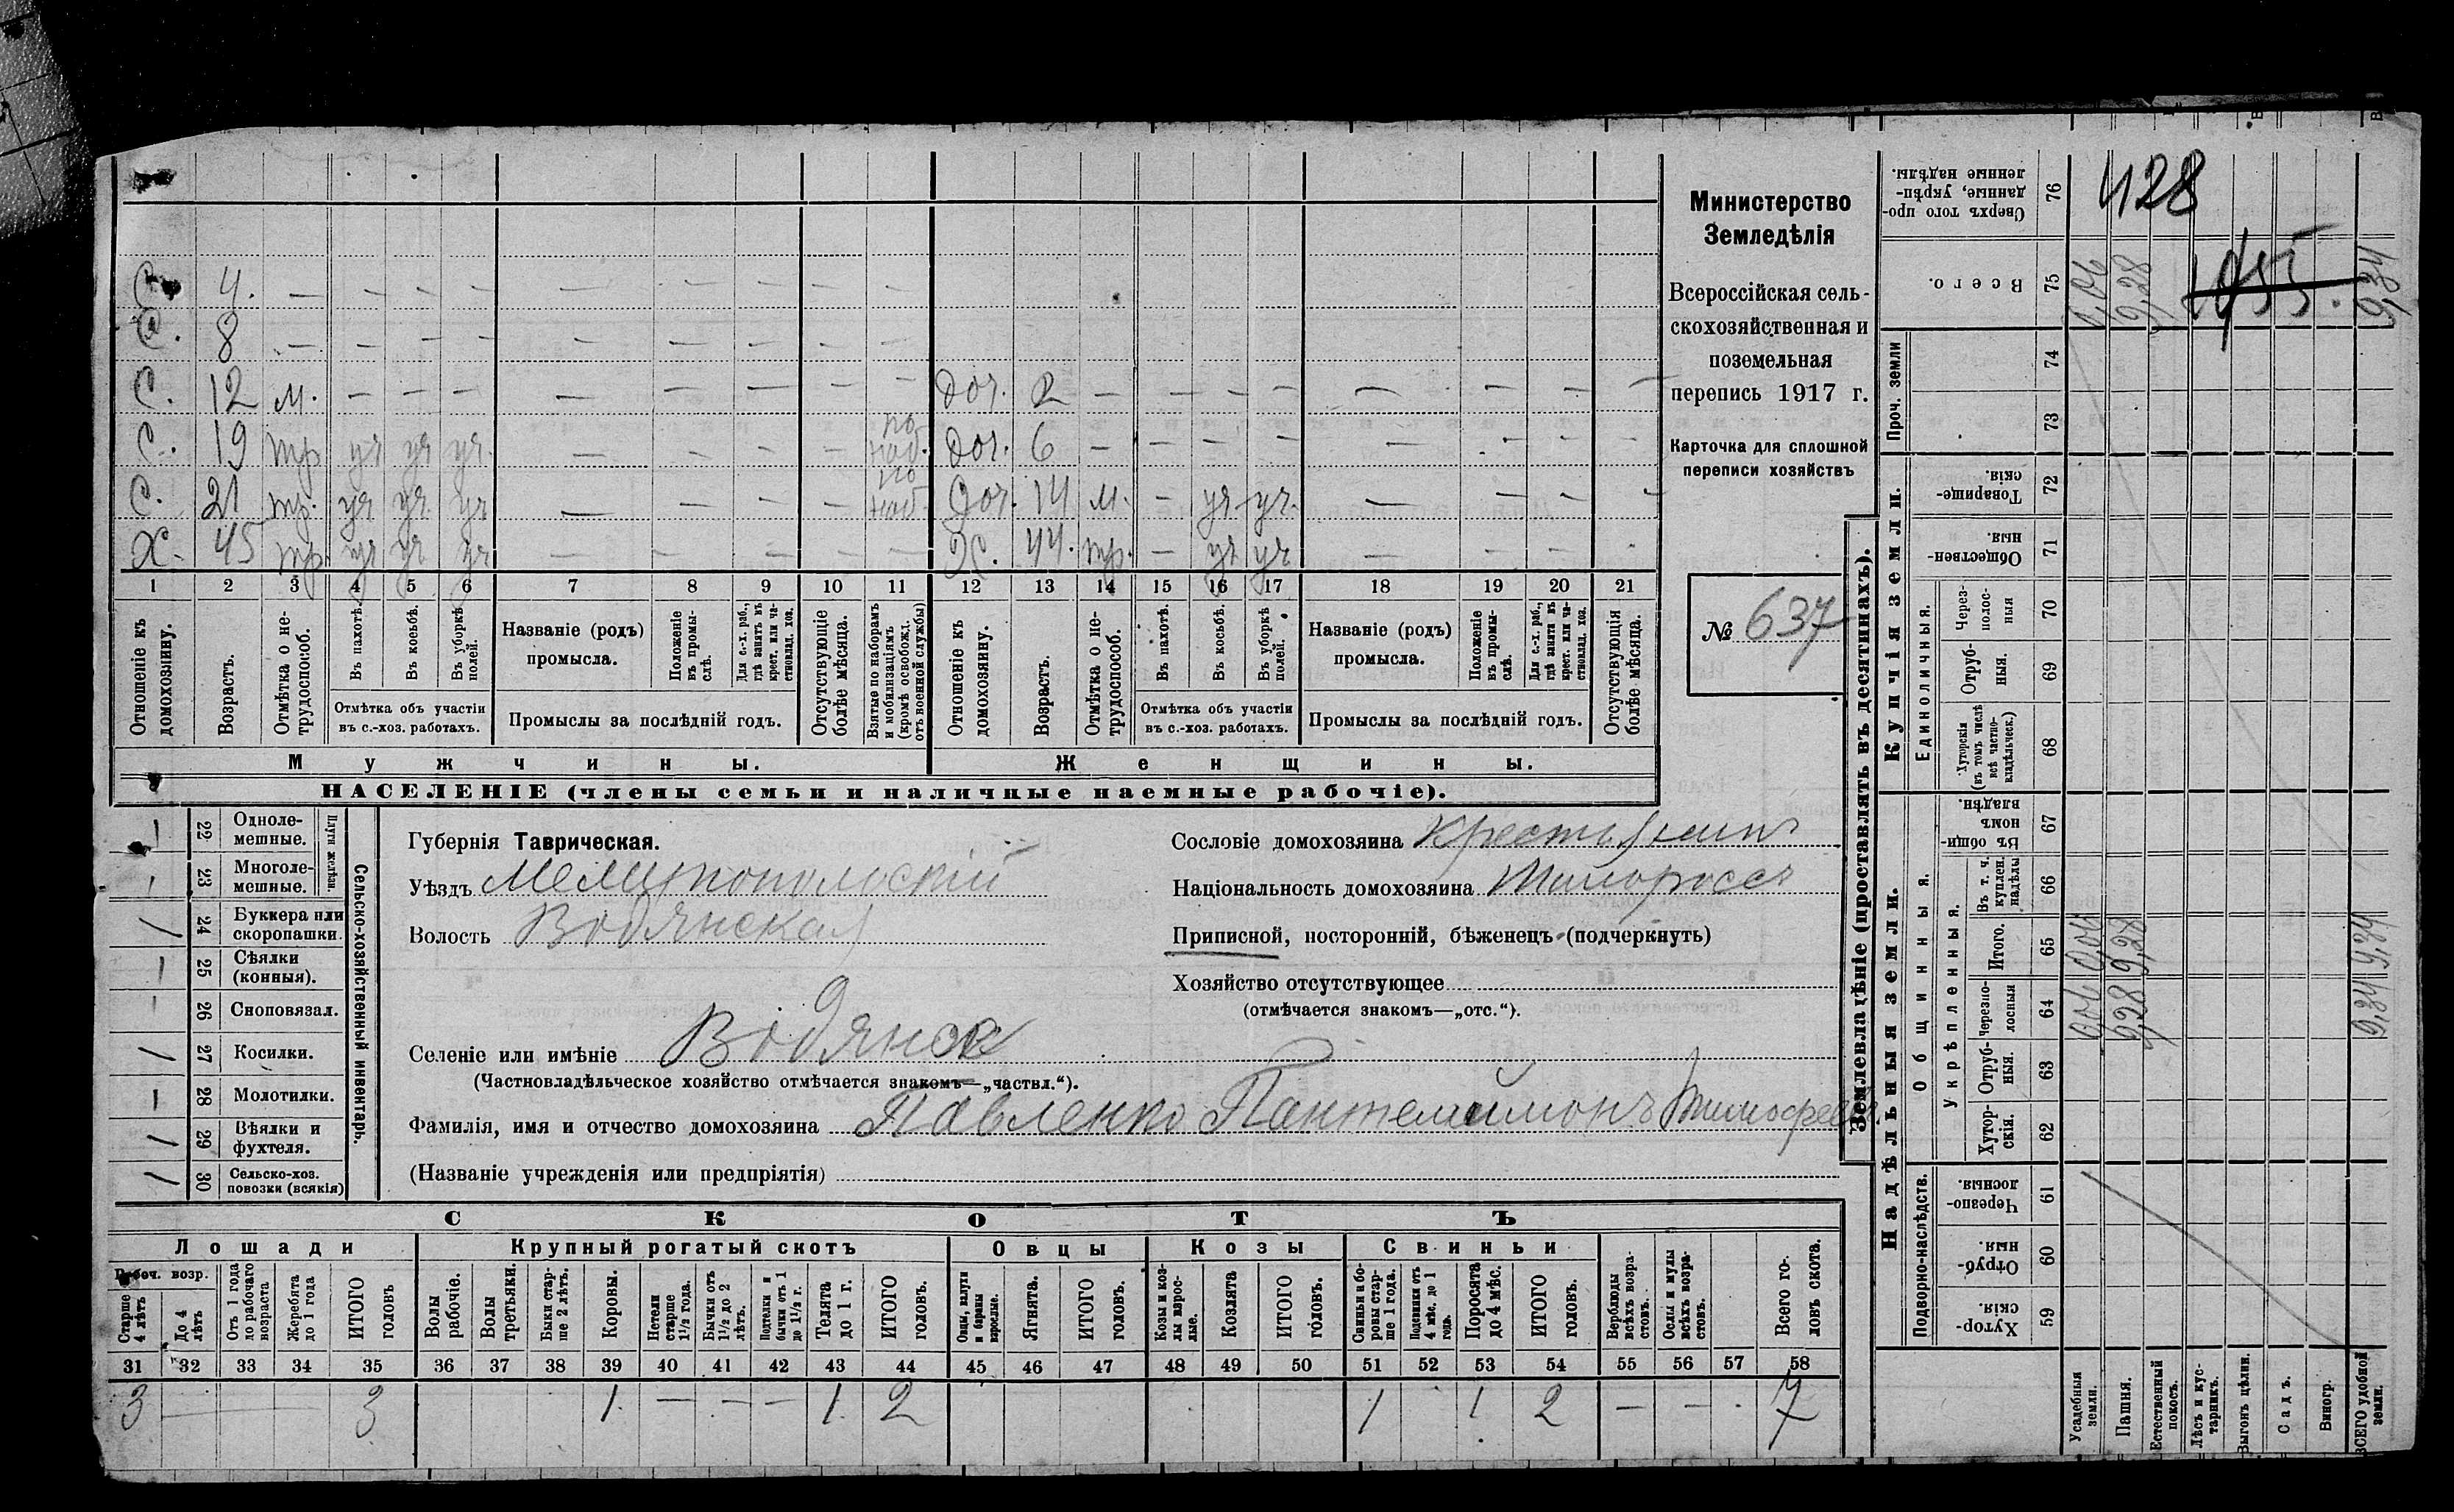 С. 4. — — — — — — — — —
С. 8 — — — — — — — — —
С. 12 м. — — — — — — — — Доч. 2 — — — — — — — —
С. 19 тр уч уч уч. — — — — по наб. Доч. 6 — — — — — — — —
С. 21 тр. уч уч. уч — — — — по наб. Доч. 14 м. — уч уч. — — — —
Х. 45 тр. уч уч уч — — — — — Х. 44. тр. — уч уч — — —
1 2 3 4 5 6 7 8 9 10 11 12 13 14 15 16 17 18 19 20 21
Отношеніе къ домохозяину.
Возрастъ.
Отмѣтка о не-трудоспособ.
Въ пахотѣ.
Въ косьбѣ.
Въ уборкѣ полей.
Отмѣтка объ участіи
въ с.-хоз. работахъ.
Названіе (родъ)
промысла.
Положеніе въ промы-слѣ.
Для с.-х. раб., гдѣ занятъ въ крест. или ча-стновлад. хоз.
Промыслы за послѣдній годъ.
Отсутствующіе болѣе мѣсяца.
Взятые по наборамъ и мобилизаціямъ (кромѣ освобожд. отъ военной службы)
Отношеніе къ домохозяину.
Возрастъ.
Отмѣтка о не-трудоспособ.
Въ пахотѣ.
Въ косьбѣ.
Въ уборкѣ полей.
Отмѣтка объ участіи
въ с.-хоз. работахъ.
Названіе (родъ)
промысла.
Положеніе въ промы-слѣ.
Для с.-х. раб., гдѣ занята въ крест. или ча-стновлад. хоз.
Промыслы за послѣдній годъ.
Отсутствующія болѣе мѣсяца.
Мужчины.
Женщины.
НАСЕЛЕНІЕ (члены семьи и наличные наемные рабочіе).
Министерство
Земледѣлія
Всероссійская сель-
скохозяйственная и
поземельная
перепись 1917 г.
Карточка для сплошной
переписи хозяйствъ
№ 637
Плуги желѣзн.
22 Одноле-мешные.
23 Многоле-мешные.
24 Буккера или скоропашки.
25 Сѣялки (конныя).
26 Сноповязал.
27 Косилки.
28 Молотилки.
29 Вѣялки и фухтеля.
30 Сельско-хоз. повозки (всякія)
Сельско-хозяйственный инвентарь.
Губернія Таврическая.
Уѣздъ Мелитопольскій
Волость Водянская
Селеніе или имѣніе Водяное
(Частновладѣльческое хозяйство отмѣчается знакомъ—„частвл.“).
Фамилія, имя и отчество домохозяина Павленко Пантелеимонъ Тимофеев
(Названіе учрежденія или предпріятія)
Сословіе домохозяина Крестьянинъ
Національность домохозяина Малороссъ
Приписной, посторонній, бѣженецъ (подчеркнуть)
Хозяйство отсутствующее
(отмѣчается знакомъ—„отс.“).
СКОТЪ
Лошади
Крупный рогатый скотъ
Овцы
Козы
Свиньи
Рабоч. возр.
Старше 4 лѣтъ
До 4 лѣтъ
Отъ 1 года до рабочаго возраста
Жеребята до 1 года
ИТОГО головъ
Волы рабочіе.
Волы третьяки.
Быки стар-ше 2 лѣтъ.
Коровы.
Нетели старше 1½ года.
Бычки отъ 1½ до 2 лѣтъ.
Подтелки и бычки отъ 1 до 1½ г.
Телята до 1 г.
ИТОГО головъ.
Овцы, валухи и бараны взрослые.
Ягнята.
ИТОГО головъ.
Козы и коз-лы взрос-лые.
Козлята
ИТОГО головъ.
Свиньи и бо-ровы стар-ше 1 года.
Подсвинки отъ 4 мѣс. до 1 года.
Поросята до 4 мѣс.
ИТОГО головъ.
Верблюды всѣхъ возра-стовъ.
Ослы и мулы всѣхъ возра-стовъ.
Всего го-ловъ скота.
31 32 33 34 35 36 37 38 39 40 41 42 43 44 45 46 47 48 49 50 51 52 53 54 55 56 57 58
3 — 3 1. — — — 1. 2 1 1 2 — — 7
Землевладѣніе (проставлять въ десятинахъ).
Надѣльныя земли.
Купчія земли.
Проч. земли
Подворно-наслѣдств.
Общинныя.
Укрѣпленныя.
Единоличныя.
76 Сверхъ того про-данные, укрѣп-ленные надѣлы. 428
75 Всего. 0,06 9,28 1955. 9,34
74
73
72 Товарище-скія.
71 Обществен-ныя.
70 Через-полос-ныя
69 Отруб-ныя.
68 Хуторскія (въ томъ числѣ всѣ частно-владѣльческ.)
67 Въ общи-номъ владѣн.
66 Въ т. ч. куплен. надѣлы
65 Итого. 0,06 9,28 9,34
64 Черезпо-лосныя 0,06 9,28 9,34
63 Отруб-ныя.
62 Хутор-скія.
61 Черезпо-лосныя.
60 Отруб-ныя.
59 Хутор-скія.
Усадебныя земли.
Пашня.
Естественный покосъ.
Лѣсъ и кус-тарникъ.
Выгонъ цѣлин.
Садъ.
Виногр.
ВСЕГО удобной земли.